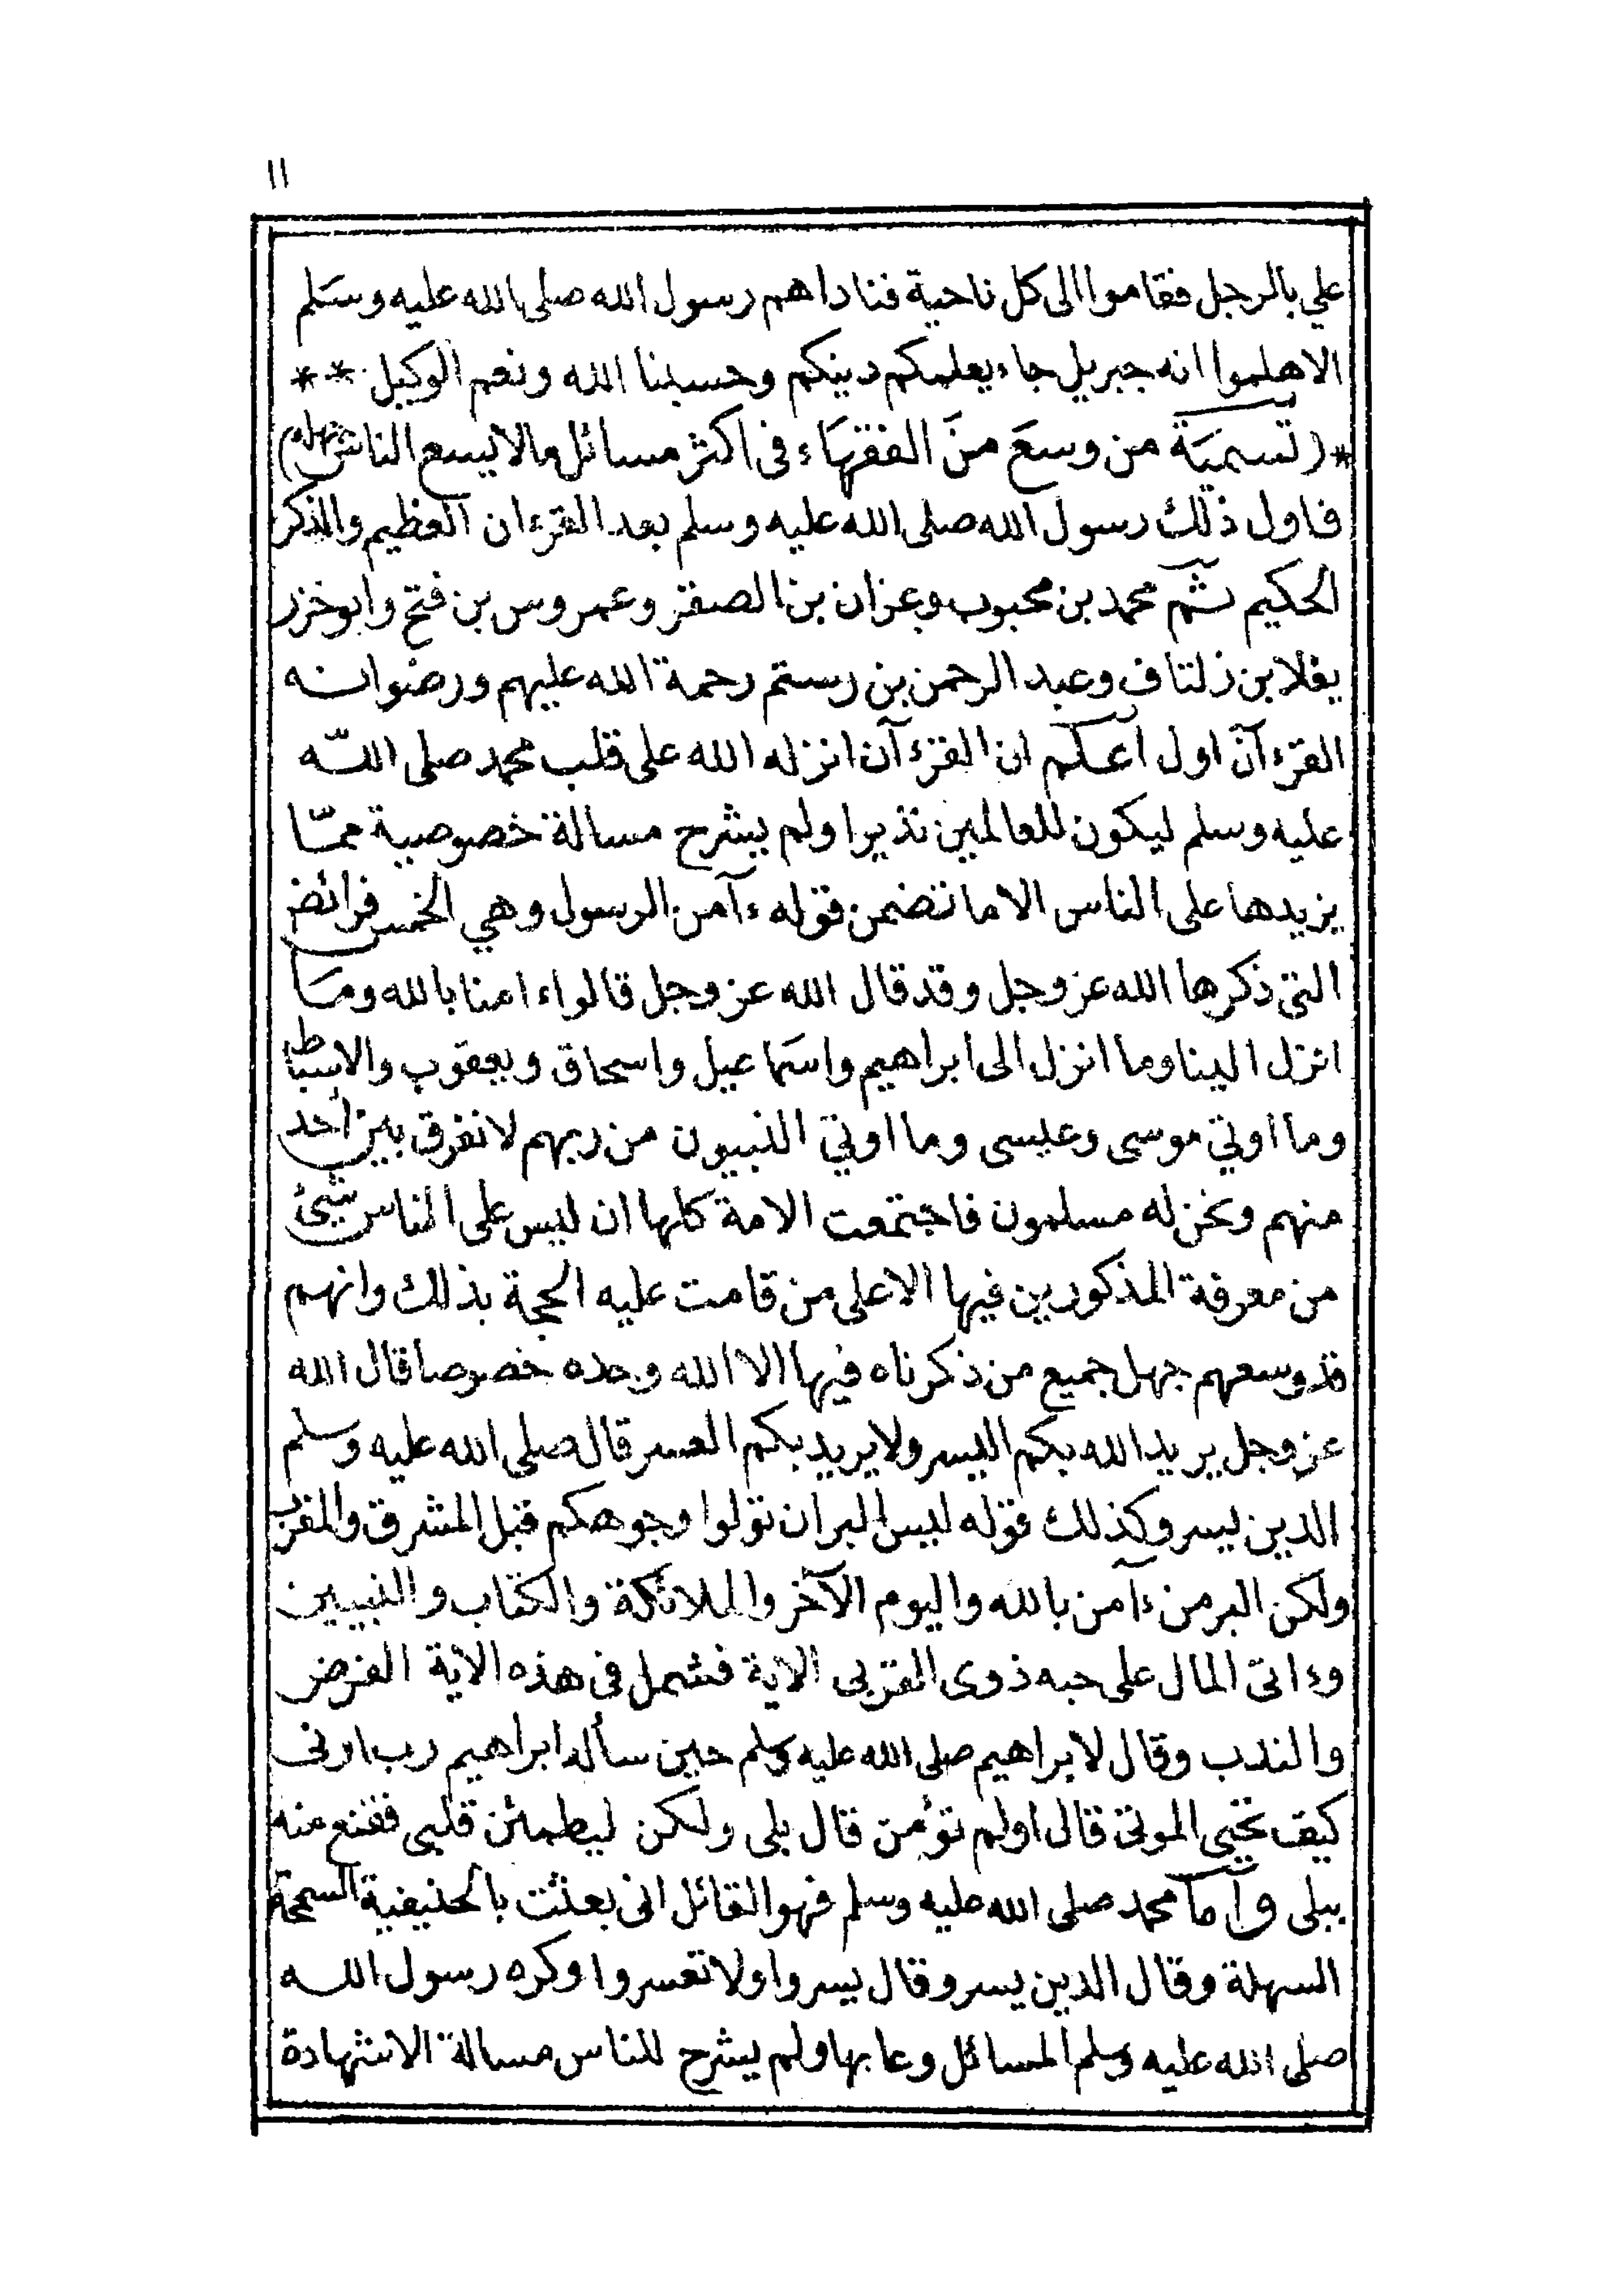 ١١
علي بالرجل فقاموا الى كل ناحية فناداهم رسول الله صلى الله عليه وسَلم
الا هلموا انه جبريل جاء يعلمكم دينكم وحسبنا الله ونعم الوكيل **
*(تسميَة من وسعَ منَ الفقهَاء فى اكثر مسائل مالا يسع الناس جهله)
فاول ذلك رسول الله صلى الله عليه وسلم بعد القرءان العظيم والذكر
الحكيم ثم محمد بن محبوب وعزان بن الصقر وعمروس بن فتح وابو خزر
يغلا بن زلتاف وعبد الرحمن بن رستم رحمة الله عليهم ورضوانه
القرءآن اول اعلم ان القرءآن انزله الله على قلب محمد صلى اللّه
عليه وسلم ليكون للعالمين نذيرا ولم يشرح مسالة خصوصية ممّا
يزيدها على الناس الا ما تضمن قوله ءآمن الرسول وهي الخمس فرائض
التى ذكرها الله عز وجل وقد قال الله عز وجل قالوا ءامنا بالله ومَا
انزل الينا وما انزل الى ابراهيم واسَماعيل واسحاق ويعقوب والاسباط
وما اوتي موسى وعيسى وما اوتي النبيون من ربهم لا نفرق بين أحد
منهم ونحن له مسلمون فاجتمعت الامة كلها ان ليس على الناس شيئ
من معرفة المذكورين فيها الا على من قامت عليه الحجة بذلك وانهم
قد وسعهم جهل جميع من ذكرناه فيها الا الله وحده خصوصا قال الله
عز وجل يريد الله بكم اليسر ولا يريد بكم العسر قال صلى الله عليه وسلم
الدين يسر وكذلك قوله ليس البر ان تولوا وجوهكم قبل المشرق والمغرب
ولكن البر من ءآمن بالله واليوم الآخر والملائكة والكتاب والنبيين
وءاتى المال على حبه ذوى القربى الاية فشمل فى هذه الاية الفرض
والندب وقال لابراهيم صلى الله عليه وسلم حين سأله ابراهيم رب ارنى
كيف تحيى الموتى قال اولم تؤمن قال بلى ولكن ليطمئن قلبى فقنع منه
ببلى وأما محمد صلى الله عليه وسلم فهو القائل انى بعثت بالحنيفية السمحة
السهلة وقال الدين يسر وقال يسروا ولا تعسروا وكره رسول الله
صلى الله عليه وسلم المسائل وعابها ولم يشرح للناس مسالة الا شهادة